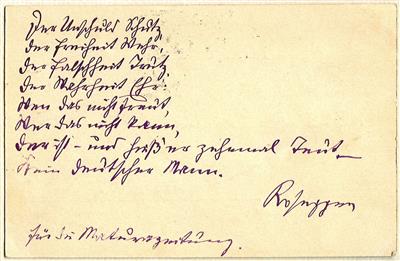 Der Unschuld Schutz,
der Freiheit Wehr,
der Falschheit Trutz,
der Wahrheit Ehr:
Wen das nicht freut,
Wer das nicht kann,
der ist – und hieß er zehnmal Teut –
Kein deutscher Mann.
Rosegger
für die Maturazeitung.